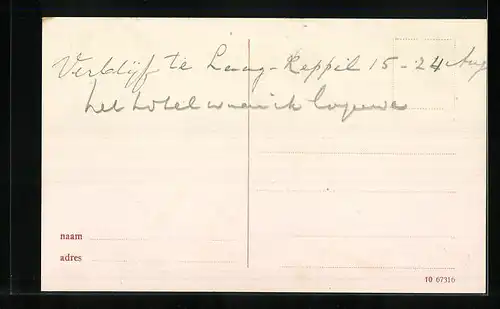 Verblijf te Laag-Keppel 15-24 Aug
het hotel waar ik logeerde
naam
adres
10 67316